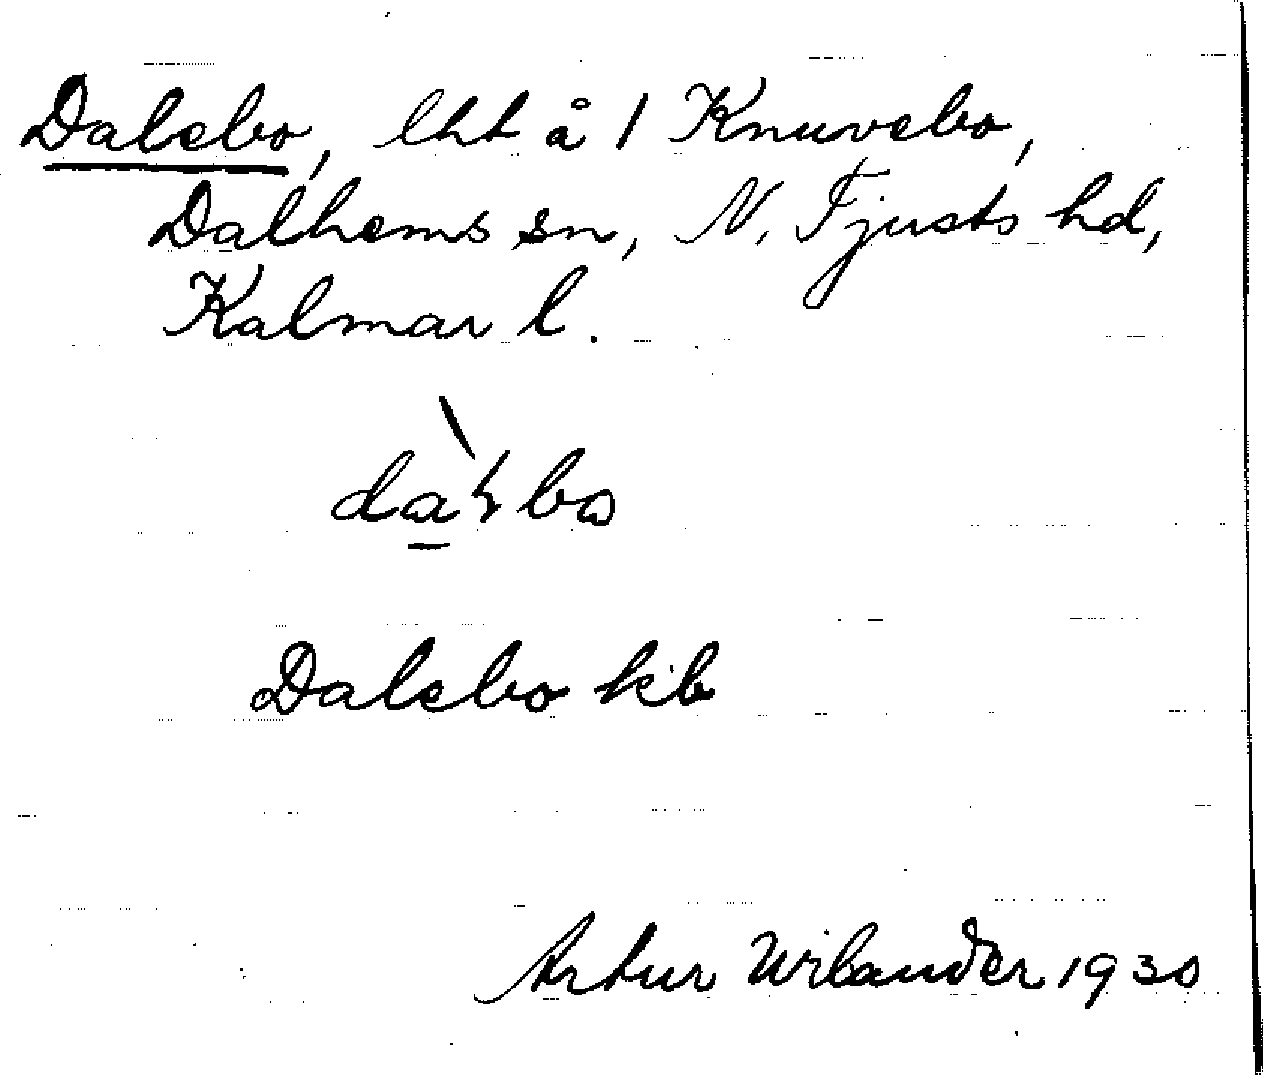 Dalebo, lht å 1 Knuvebo,
Dalhems sn, N. Tjusts hd,
Kalmar l.
Dalebo kb
Artur Wilander 1930